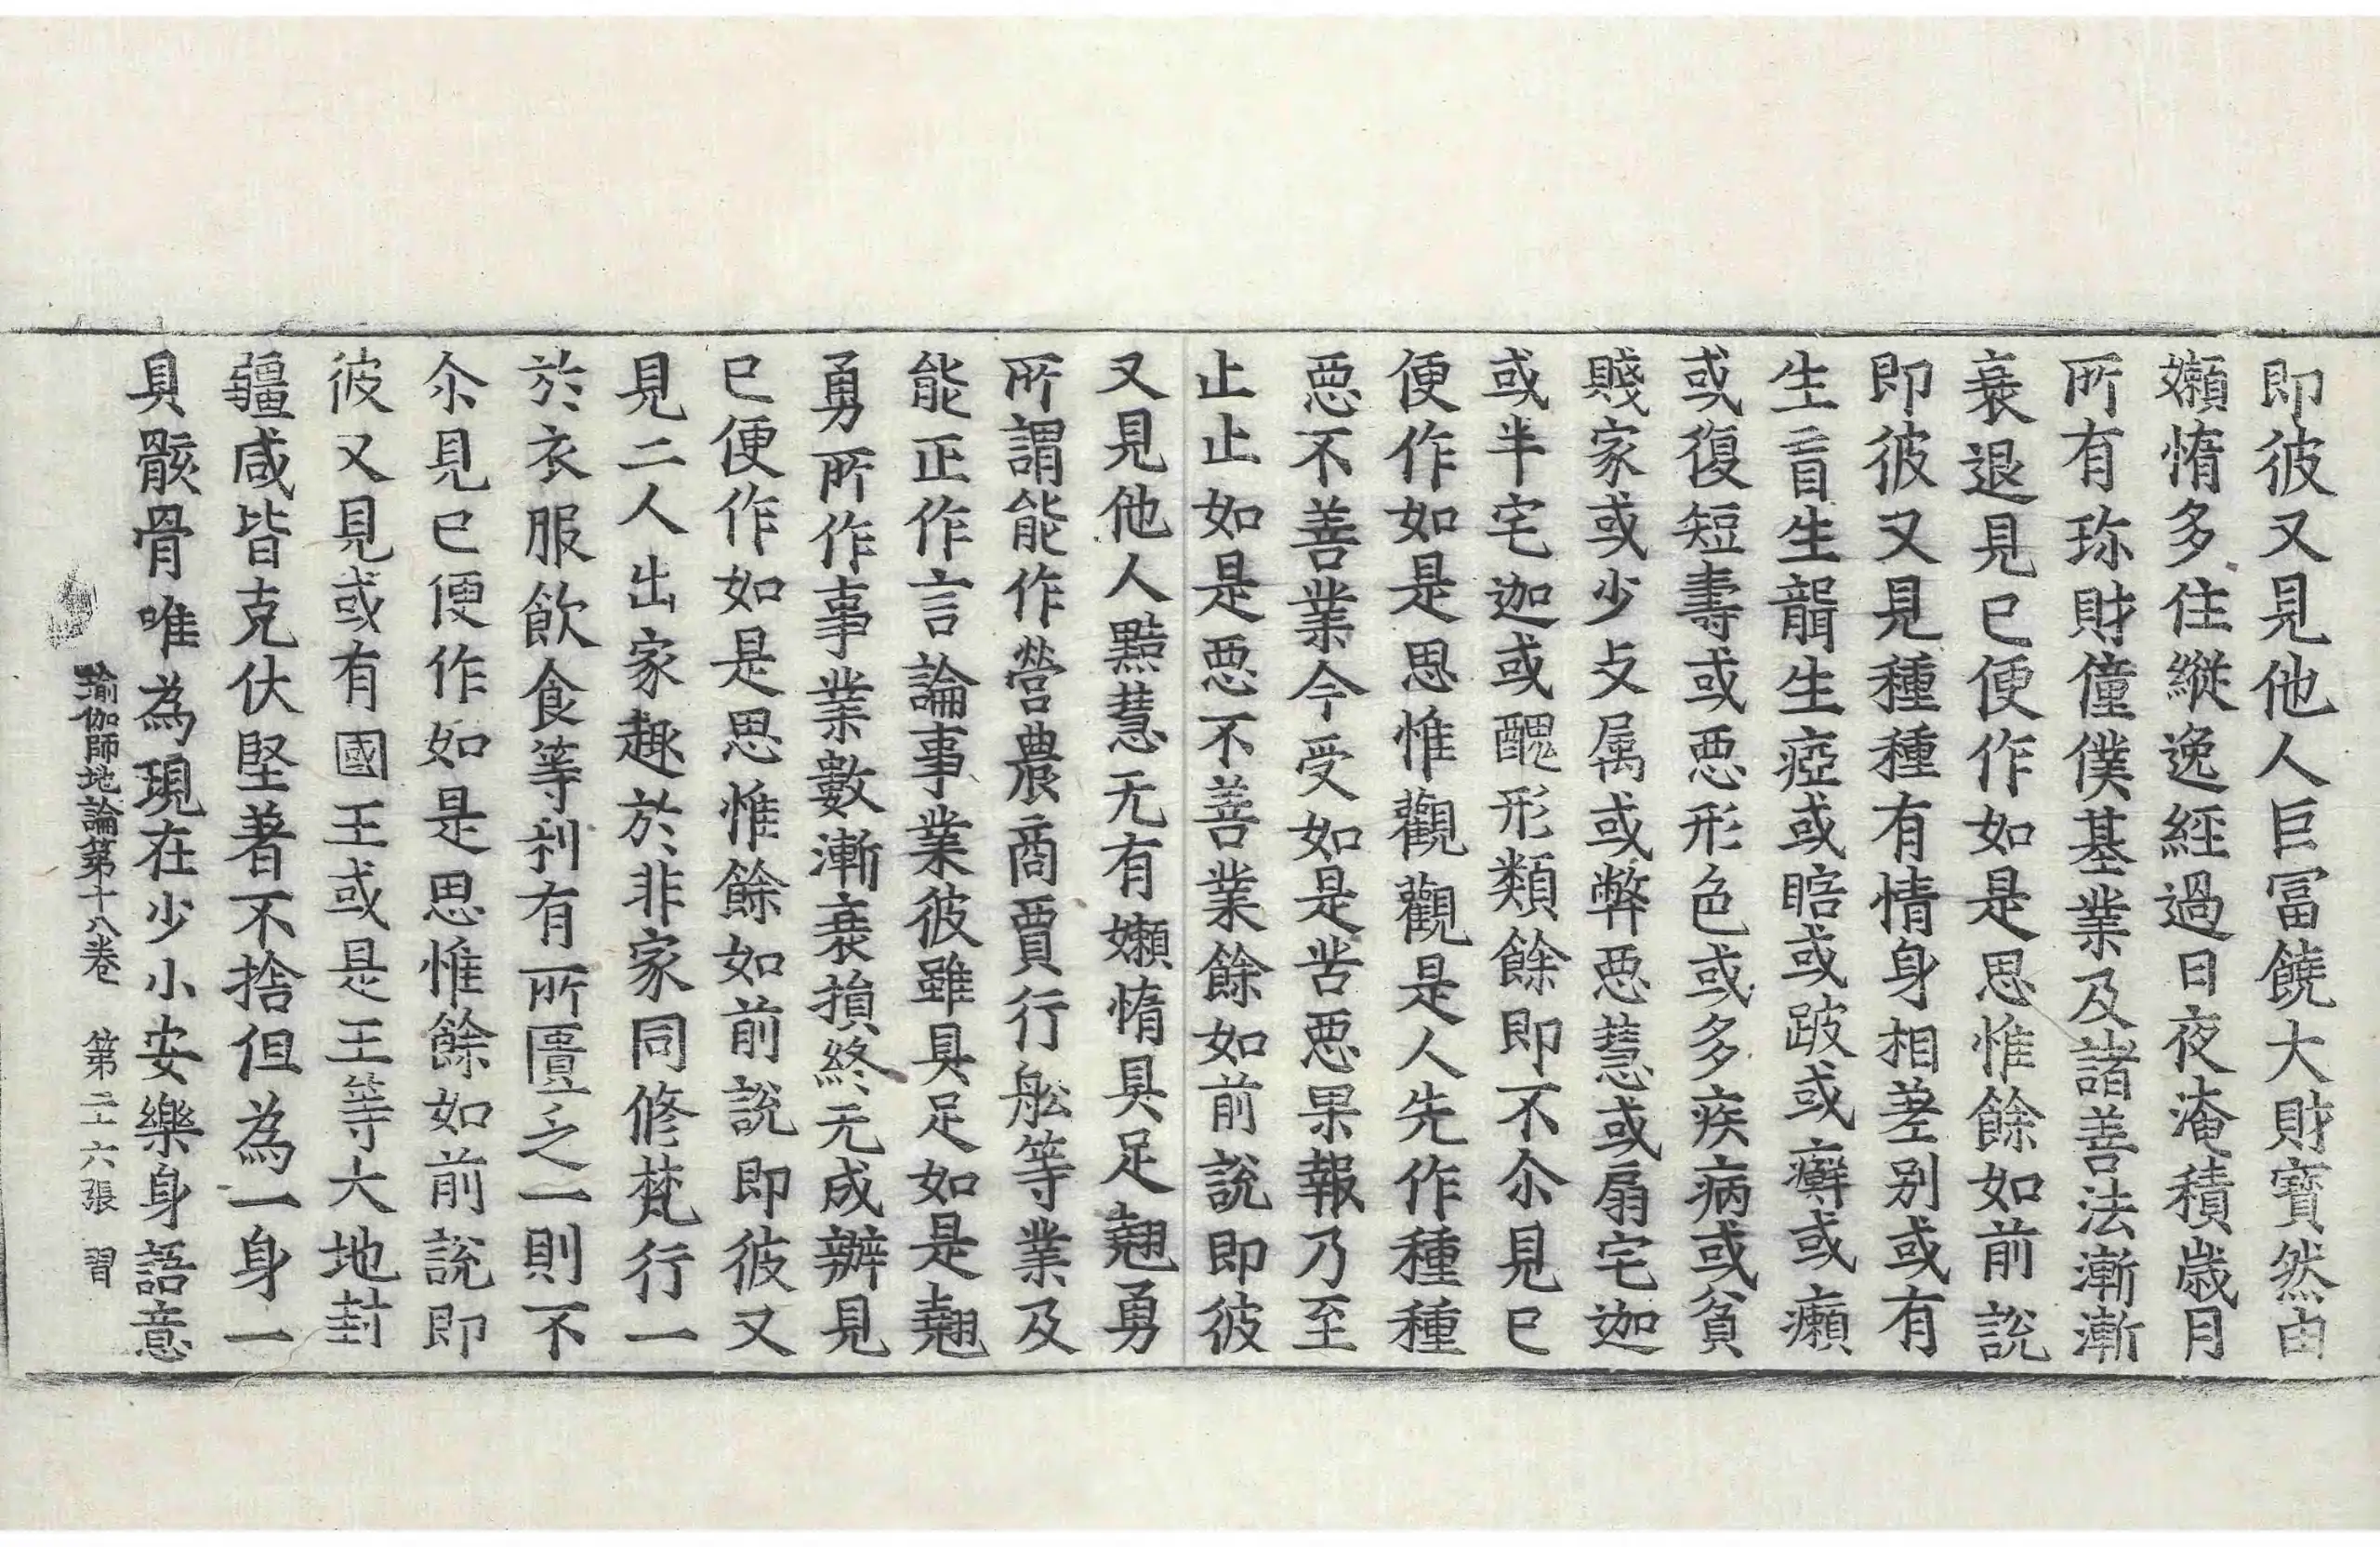 即彼又見他人巨冨饒大財寶然由
嬾惰多住縱逸經過日夜淹積歲月
所有珎財僮僕基業及諸善法漸漸
衰退見已便作如是思惟餘如前說
即彼又見種種有情身相差別或有
生盲生聾生瘂或瞎或跛或癬或癩
或復短壽或惡形色或多疾病或貧
賤家或少攴属或弊惡慧或扇宅迦
或半宅迦或醜形類餘即不尒見已
便作如是思惟觀觀是人先作種種
惡不善業今受如是苦惡果報乃至
止止如是惡不善業餘如前說即彼
又見他人黠慧无有嬾惰具足翹勇
所謂能作營農商賈行舩等業及
能正作言論事業彼雖具足如是翹
勇所作事業數漸衰損終无成辦見
已便作如是思惟餘如前說即彼又
見二人出家趣於非家同修梵行一
於衣服飲食等利有所匱乏一則不
尒見已便作如是思惟餘如前說即
彼又見或有國王或是王等大地封
疆咸皆克伏堅著不捨但為一身一
具骸骨唯為現在少小安樂身語意
瑜伽師地論第十八卷　第二十六張　習